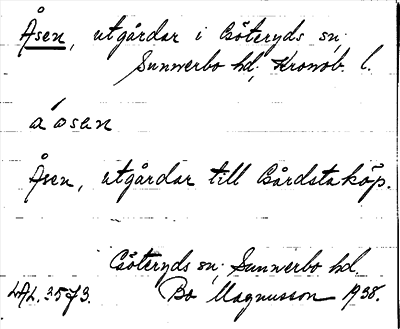 Åsen, utgårdar i Göteryds sn,
Sunnerbo hd, Kronob. l.
åʹosen
Åsen, utgårdar till Bårdstaköp.
Göteryds sn, Sunnerbo hd.
LAL. 3573. Bo Magnusson 1938.